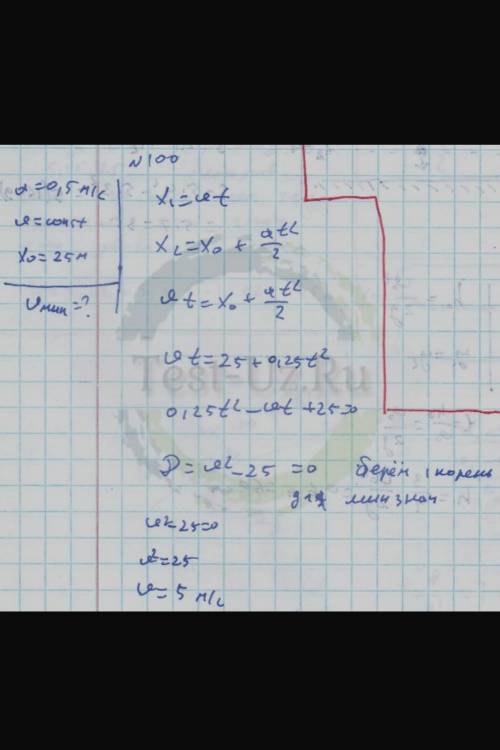 №100
a=0,5 м/с
v=const
x₀=25м
vмин=?
x₁=vt
x₂=x₀+at²/2
vt=x₀+at²/2
vt=25+0,25t²
0,25t²-vt+25=0
D=v²-25=0 берём 1 корень
для мин знач
v²-25=0
v²=25
v=5 м/с
Test-Uz.Ru